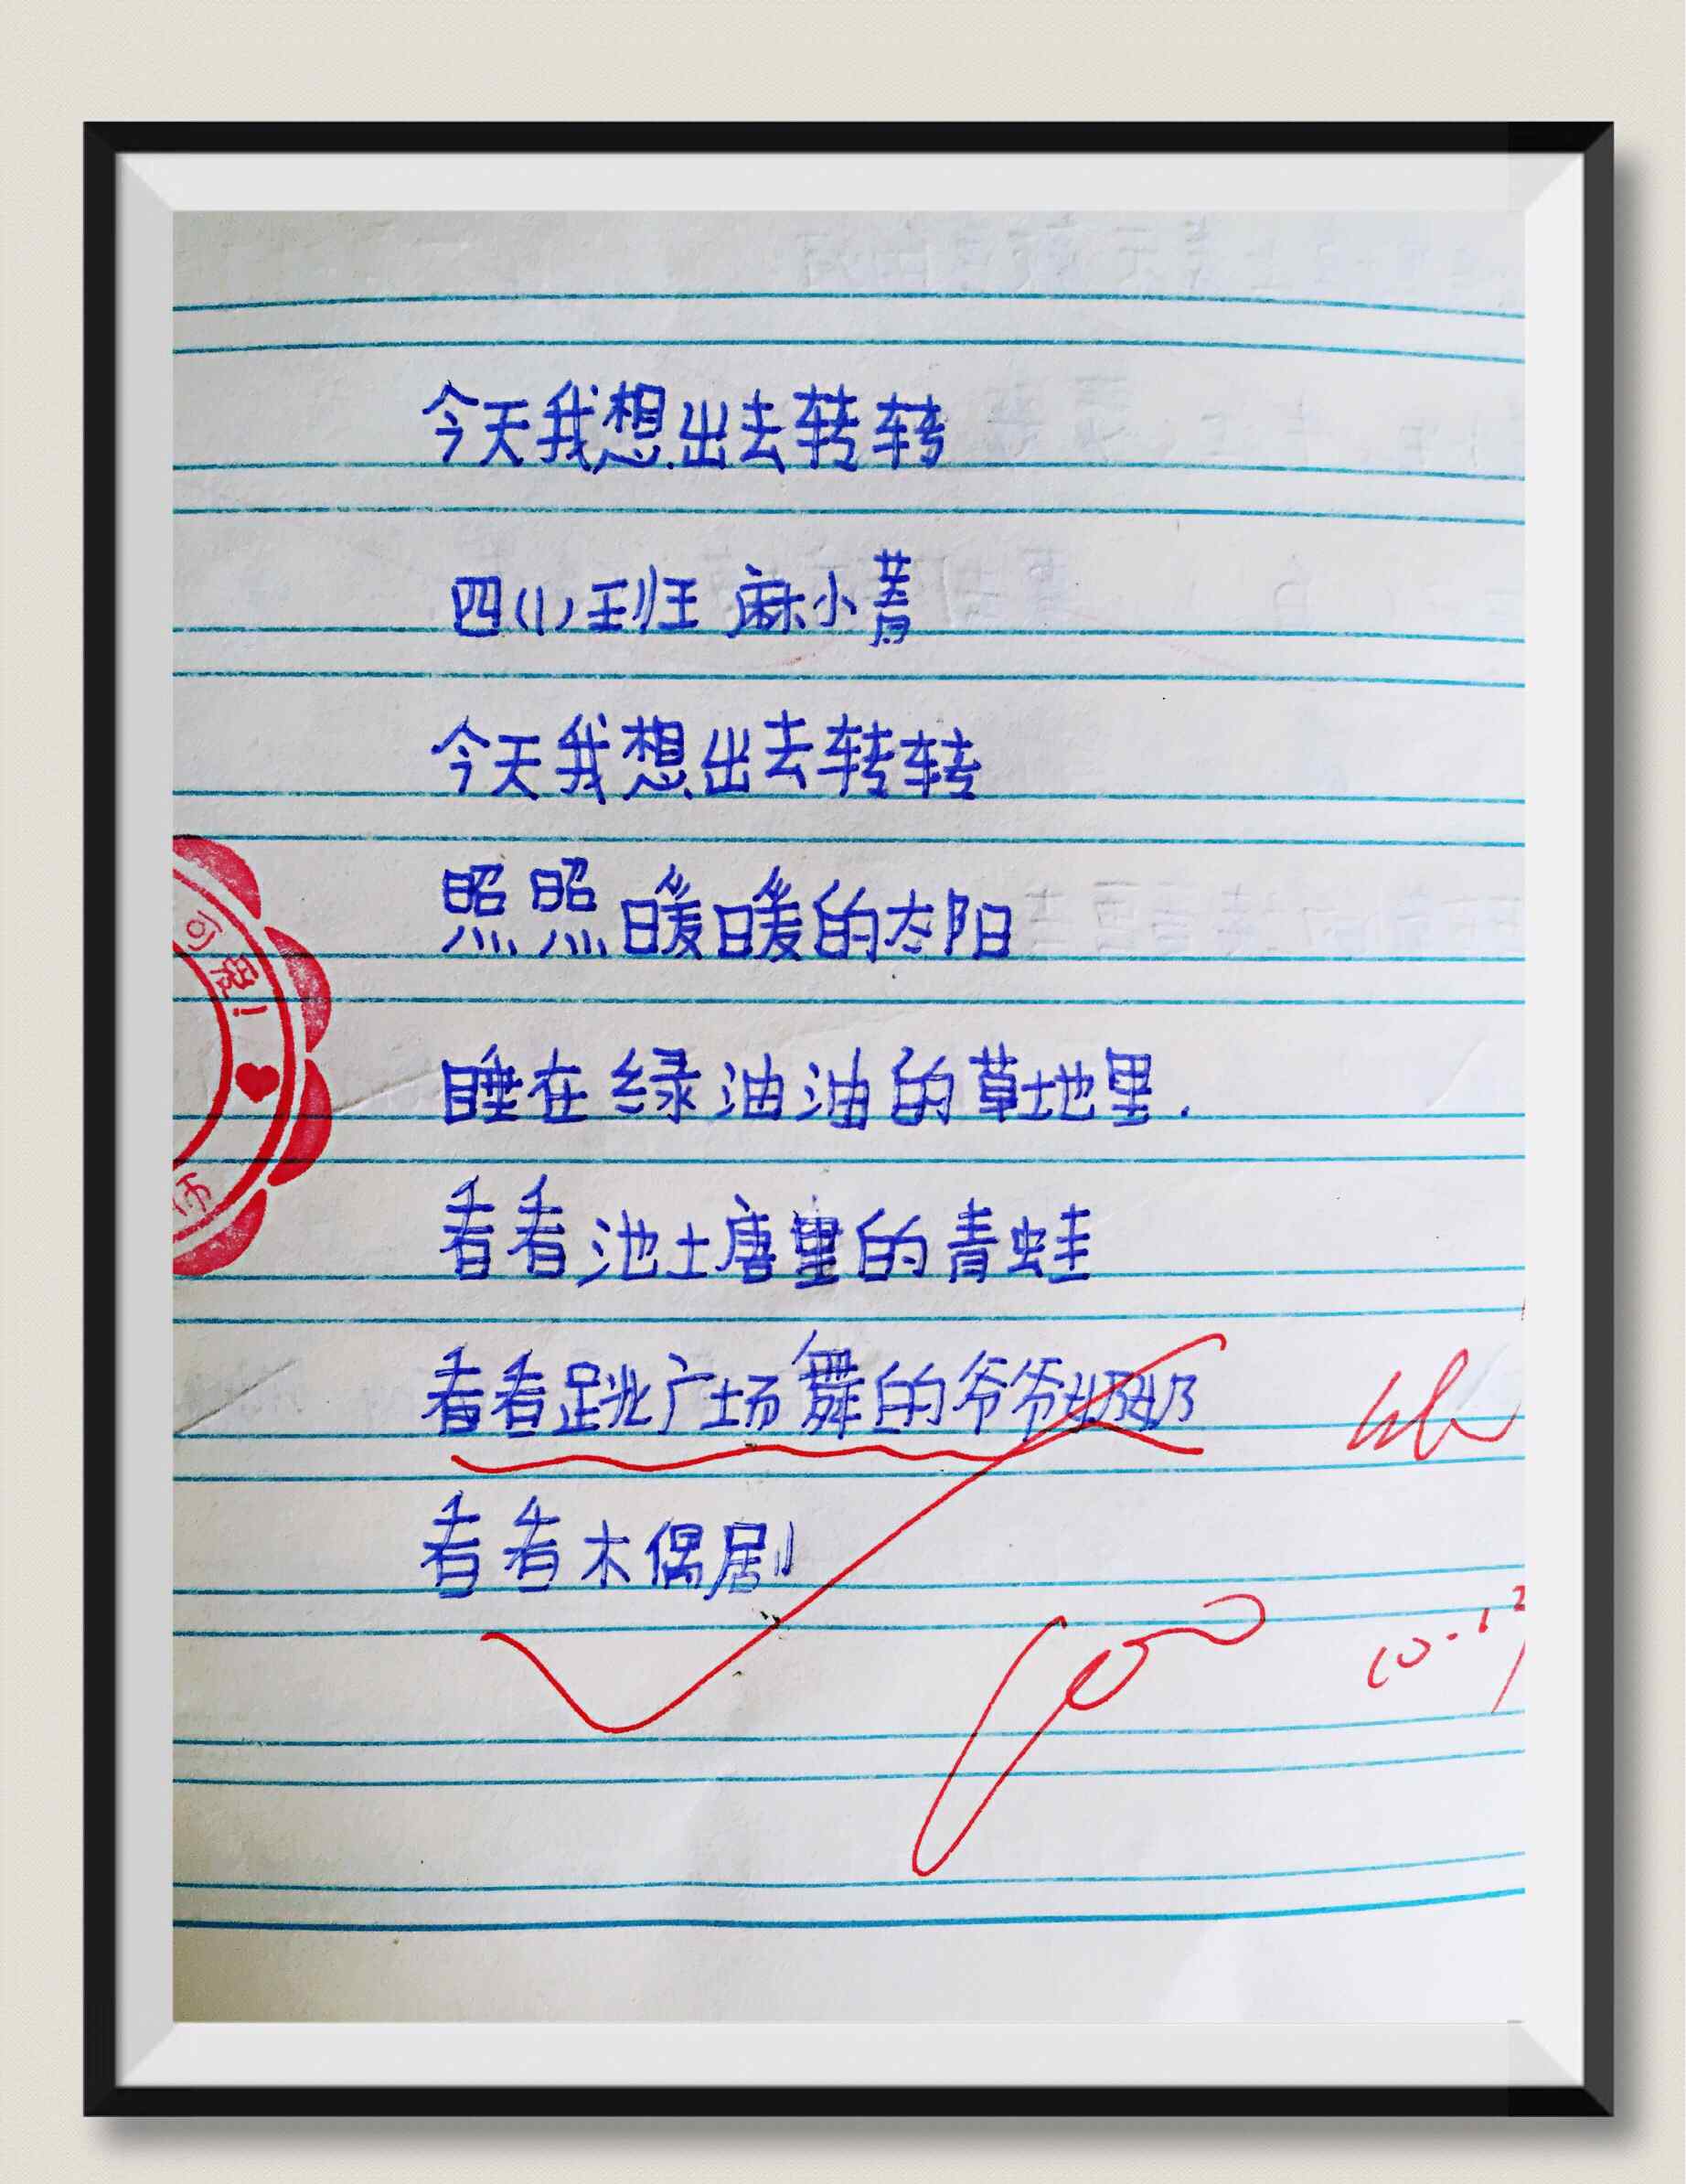 今天我想出去转转
四(1)班 麻小菁
今天我想出去转转
照照暖暖的太阳
睡在绿油油的草地里.
看看池塘里的青蛙
看看跳广场舞的爷爷奶奶
看看木偶剧